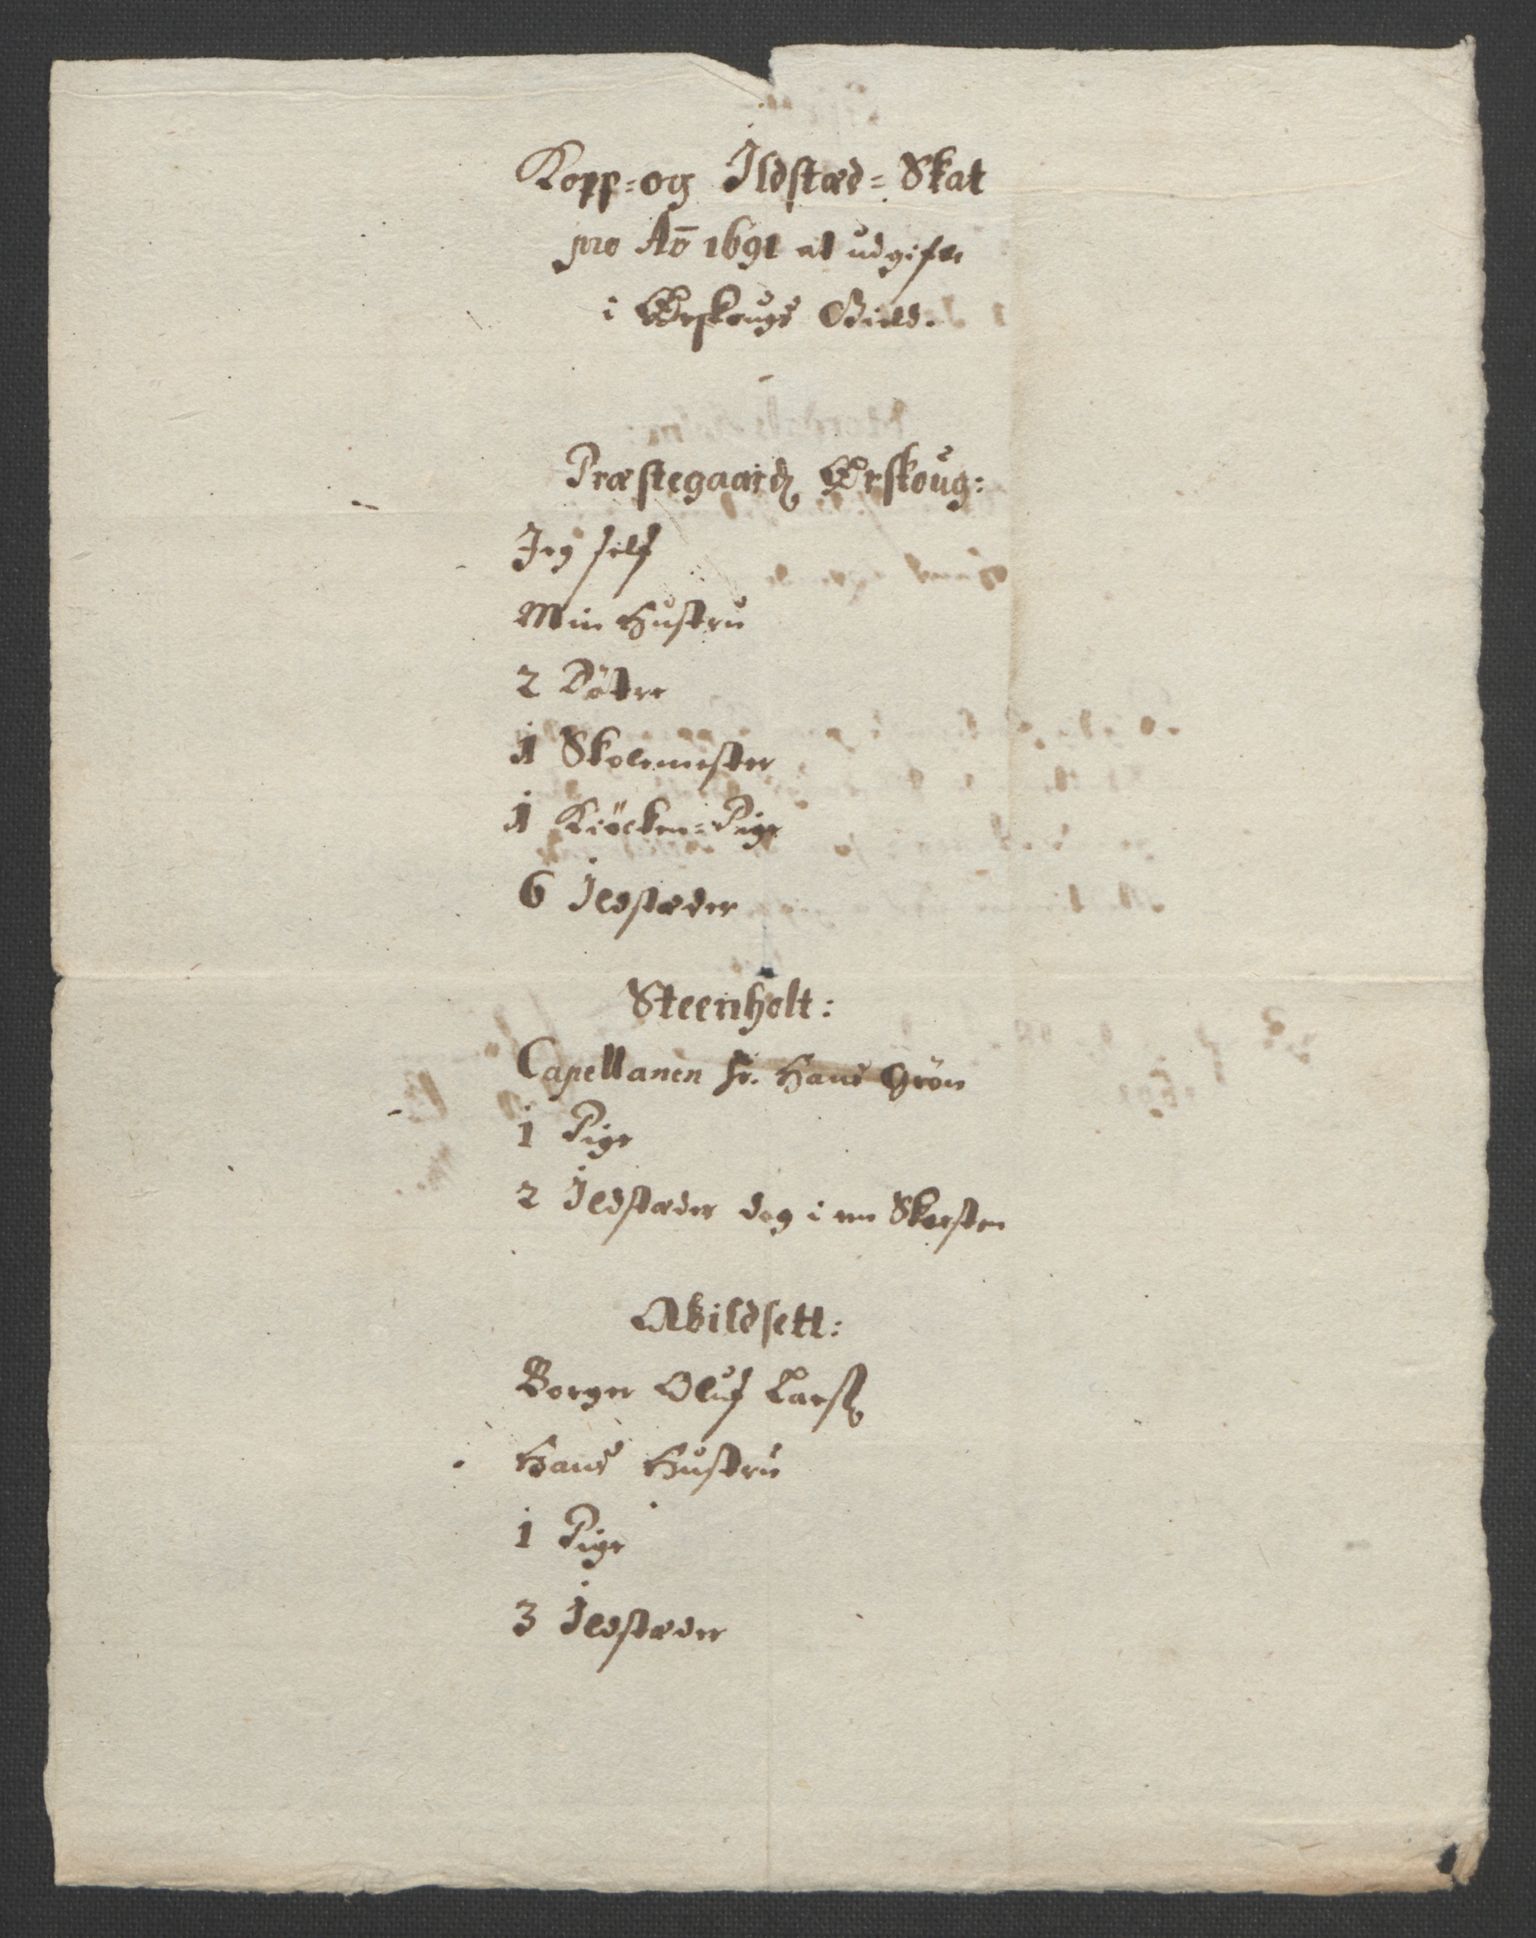 Kopp-og Ildstæd-Skat
pro Ao 1691 at udgifve
i Ørskougs Gield.
Præstegaard Ørskoug:
Jeg self
Min Hustru
2 Döttre
1 Skolemester
1 Kiöcken-Pige
6 Ildstæder
Steenholt:
Capellanen hr. Hans Grön
1 Pige
2 Ildstæder dog i en Skorsten
Abildsett:
Borger Oluf Lars
Hans Hustru
1 Pige
3 Ildstæder